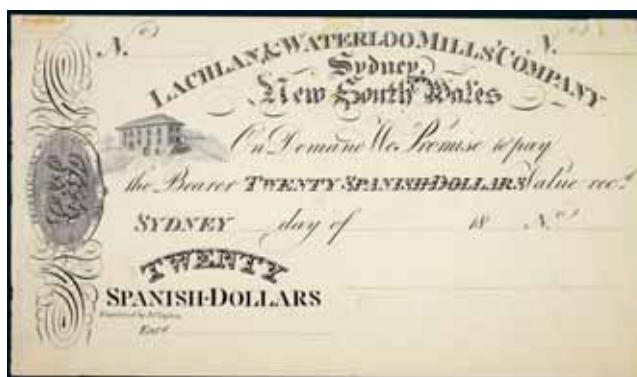 No No
LACHLAN & WATERLOO MILLS' COMPANY
Sydney,
New South Wales
On Demand We Promise to pay
the Bearer TWENTY SPANISH DOLLARS Value recd
SYDNEY day of 18 No
TWENTY
SPANISH DOLLARS
Engraved by
Entd